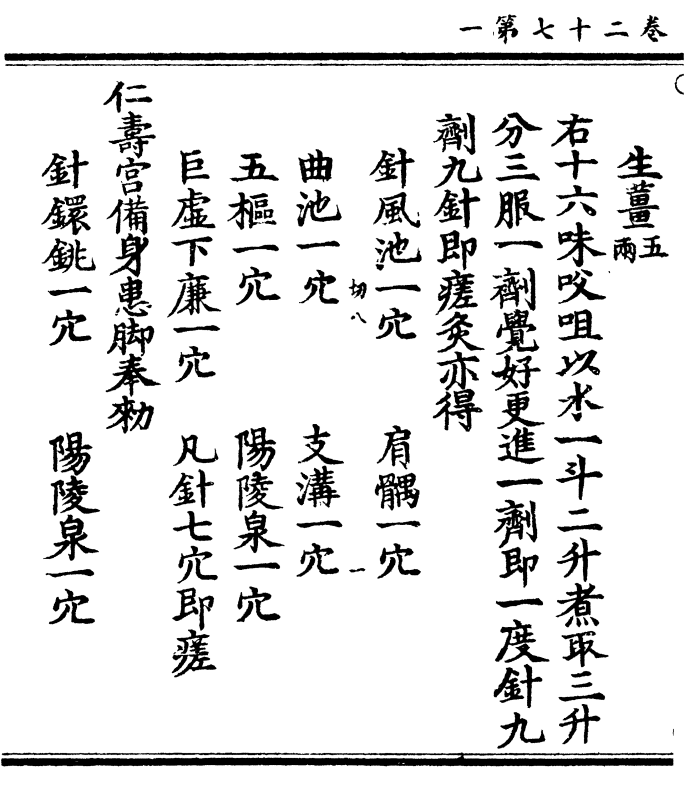 卷二十七第一
生薑五兩
右十六味㕮咀以水一斗二升煮取三升
分三服一劑覺好更進一劑即一度針九
劑九針即瘥灸亦得
針風池一穴 肩髃一穴
切八 一
曲池一穴 支溝一穴
五樞一穴 陽陵泉一穴
巨虛下廉一穴 凡針七穴即瘥
仁壽宮備身患脚奉勑
針鐶銚一穴 陽陵泉一穴